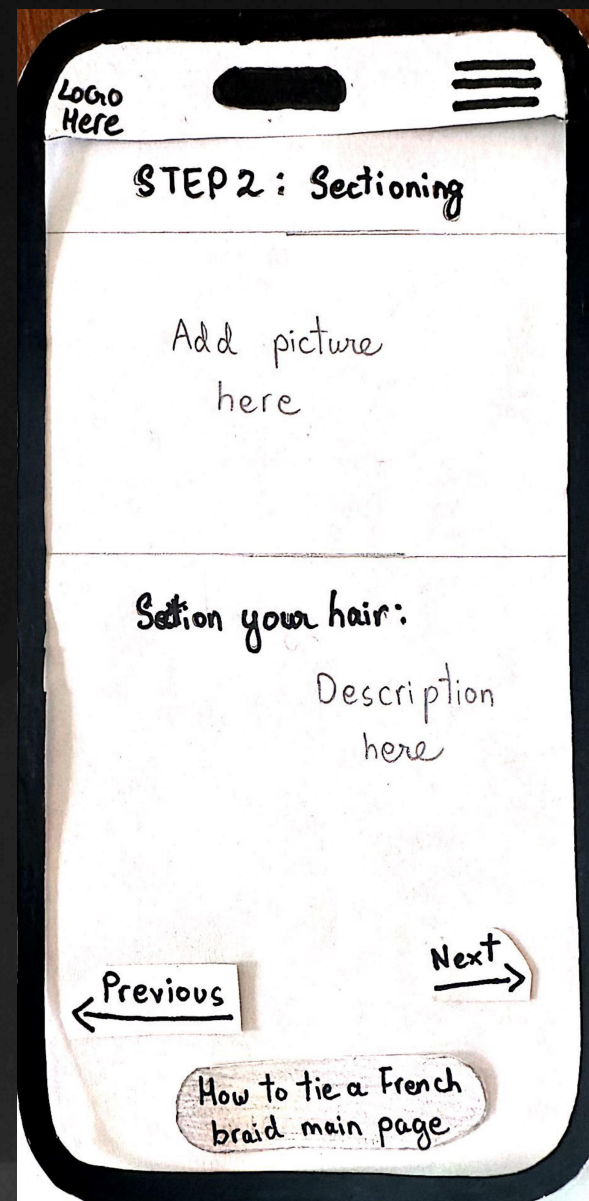 Logo
Here
STEP 2: Sectioning
Add picture
here
Section your hair:
Description
here
Next
Previous
How to tie a French
braid main page